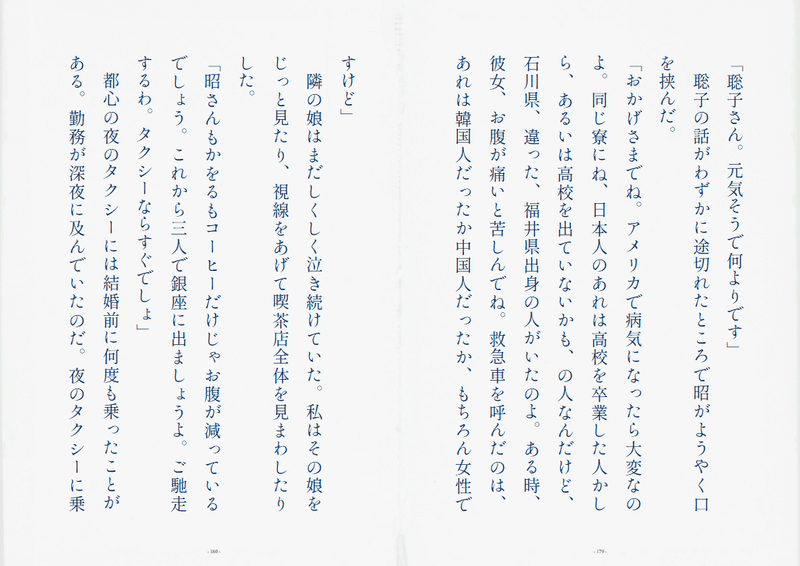 「聡子さん。元気そうで何よりです」
聡子の話がわずかに途切れたところで昭がようやく口
を挟んだ。
「おかげさまでね。アメリカで病気になったら大変なの
よ。同じ寮にね、日本人のあれは高校を卒業した人かし
ら、あるいは高校を出ていないかも、の人なんだけど、
石川県、違った、福井県出身の人がいたのよ。ある時、
彼女、お腹が痛いと苦しんでね。救急車を呼んだのは、
あれは韓国人だったか中国人だったか、もちろん女性で
- 179 -
すけど」
隣の娘はまだしくしく泣き続けていた。私はその娘を
じっと見たり、視線をあげて喫茶店全体を見まわしたり
した。
「昭さんもかをるもコーヒーだけじゃお腹が減っている
でしょう。これから三人で銀座に出ましょうよ。ご馳走
するわ。タクシーならすぐでしょ」
都心の夜のタクシーには結婚前に何度も乗ったことが
ある。勤務が深夜に及んでいたのだ。夜のタクシーに乗
- 180 -